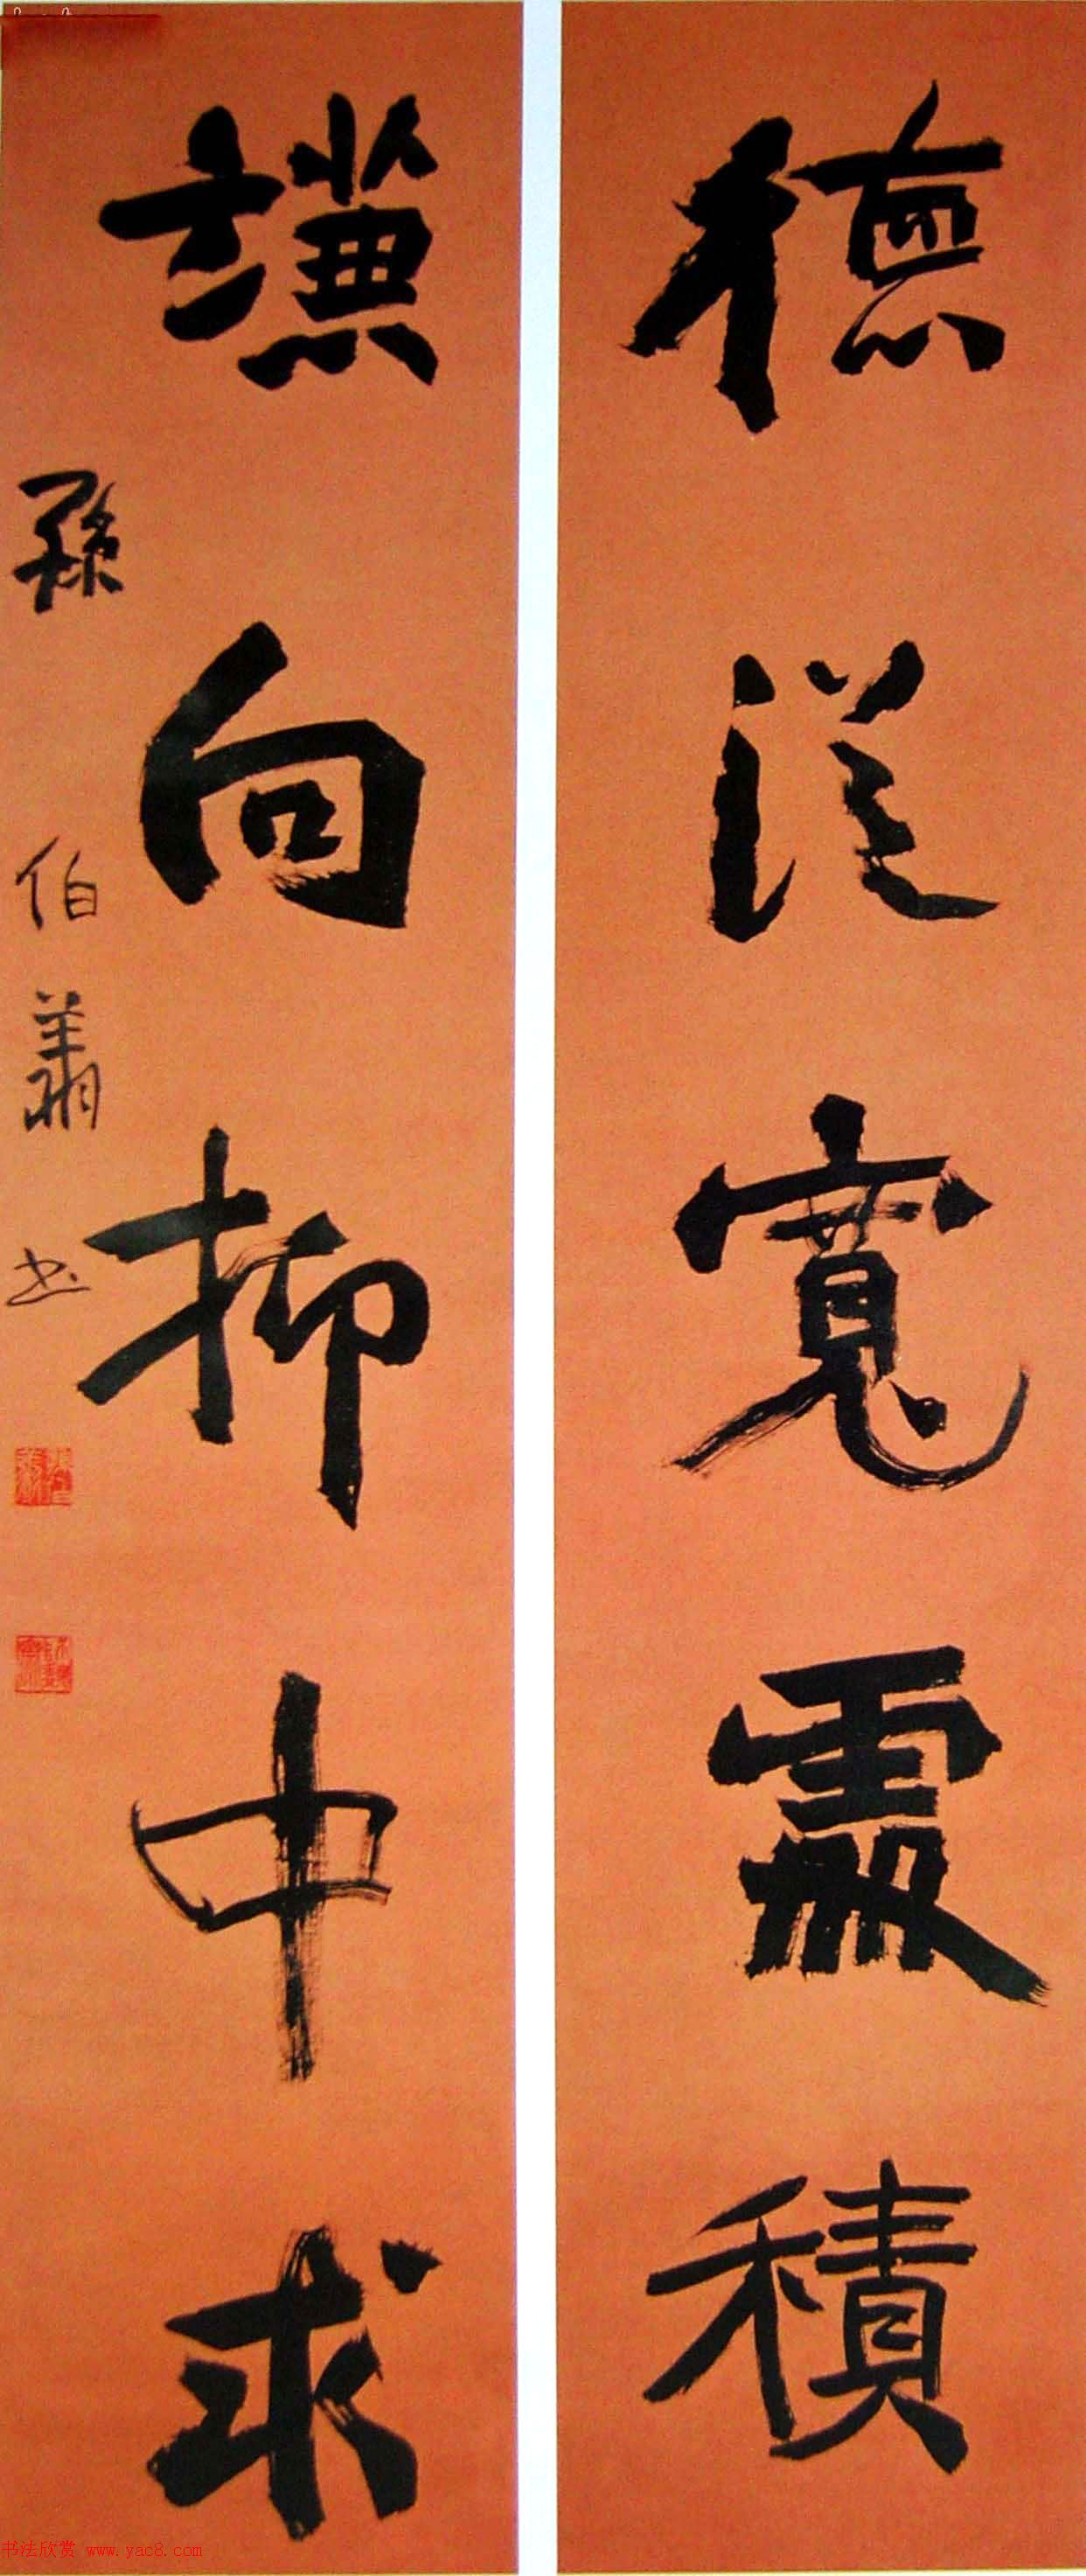 德從寬處積
謙向抑中求
孫伯翔书
书法欣赏 www.yac8.com